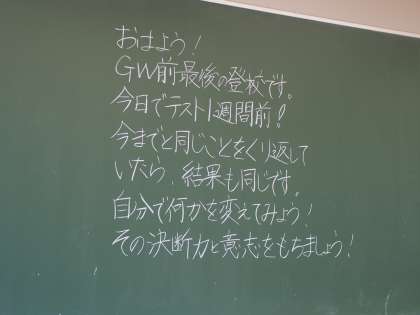 おはよう!
GW前最後の登校です。
今日でテスト1週間前!
今までと同じことをくり返して
いたら、結果も同じです。
自分で何かを変えてみよう!
その決断力と意志をもちましょう!